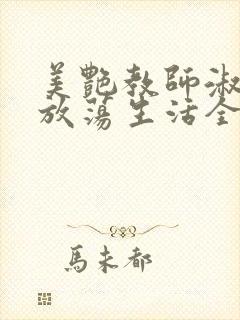 美艷教師淑
放蕩生活全
馬未都